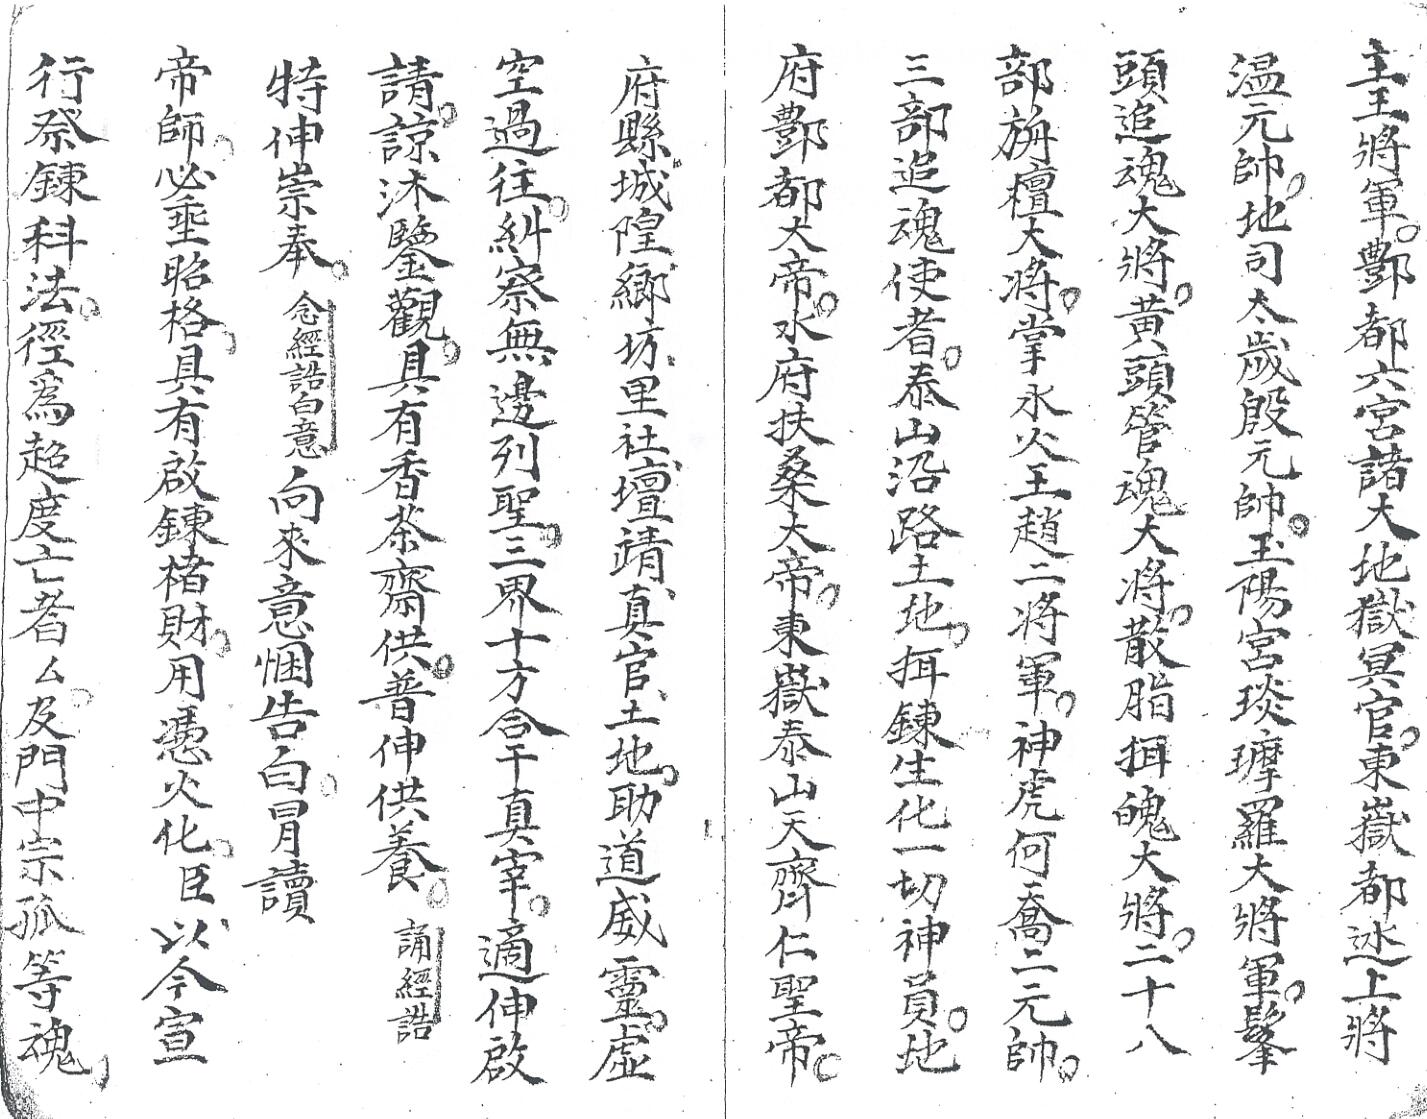 主王將軍。酆都六宮諸大地獄冥官。東嶽都逑上將
溫元帥。地司太歲殷元帥。玉陽宮琰摩羅大將軍。鬅
頭追魂大將。黃頭管魂大將。散脂掫魄大將。二十八
部旃檀大將。掌水火王趙二將軍。神虎何喬二元帥。
三部追魂使者。泰山沿路土地。掫鍊生化一切神員。地
府酆都大帝。水府扶桑大帝。東嶽泰山天齊仁聖帝。
府縣城隍、鄉坊、里社、壇靖、真官、土地。助道威靈。虛
空過往。糾察無邊列聖。三界十方合干真宰。適伸啟
請。諒沐鑒觀。具有香茶齋供。普伸供養。誦經誥
特伸崇奉。念經誥白意向來意悃告白。冒讀
帝師。必垂昭格。具有啟鍊楮財。用憑火化。臣以今宣
行祭鍊科法。徑為超度亡者厶。及門中宗孤等魂，